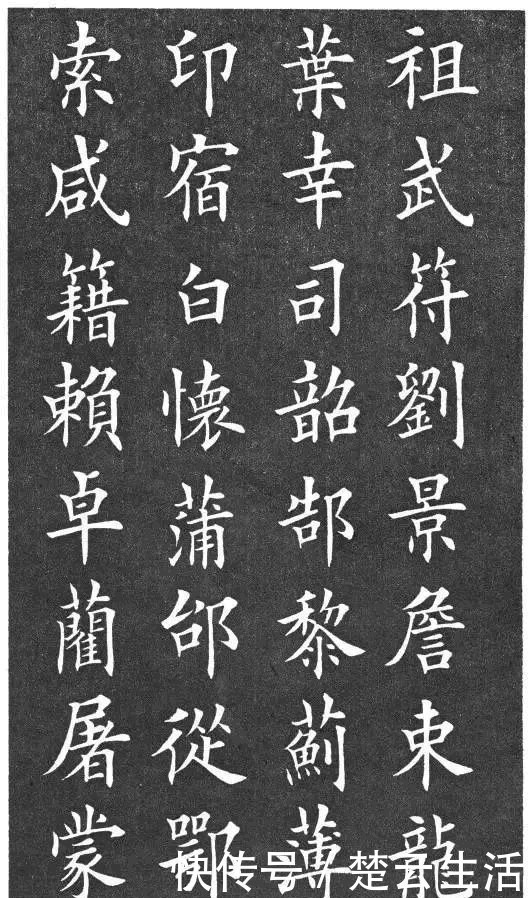 祖武符劉景詹束龍
葉幸司韶郜黎薊薄
印宿白懷蒲邰從鄂
索咸籍賴卓藺屠蒙
快传号/楚云生活